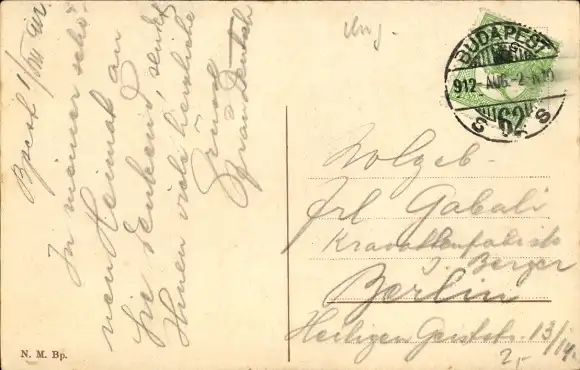 Bpest 1/VIII 912
In meiner schö-
nen Heimat an
Sie denkend, sendet
Ihnen viele herzliche
Grüsse
Ung.
BUDAPEST
912 AUG -2
62
S S
Wolgeb.
Frl Gabali
Kravattenfabrik
J. Berger
Berlin
Heiligen Geiststr. 13/14.
2,-
N. M. Bp.